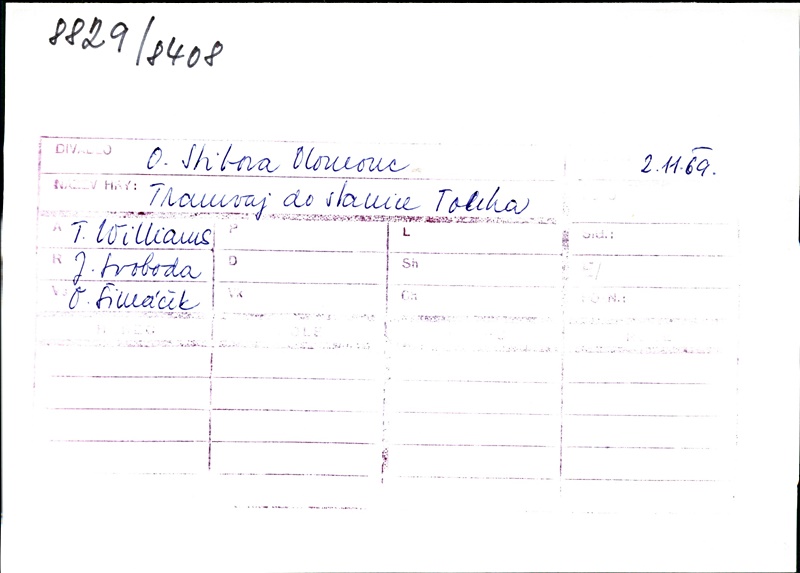 8829/8408
DIVADLO O. Stibora Olomouc 2.11.69.
NÁZEV HRY: Tramvaj do stanice Touha
A T. Williams P L
R J. Svoboda D Sh
O. Šimáček